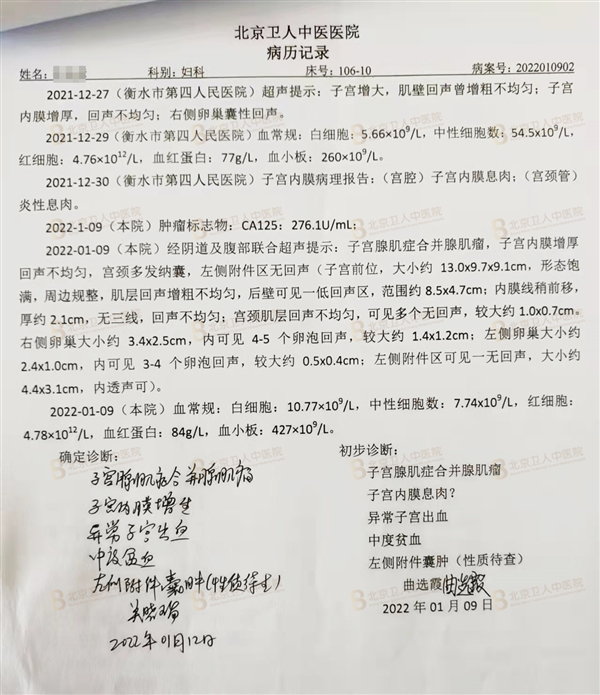 北京卫人中医医院
病历记录
姓名: 科别: 妇科 床号: 106-10 病案号: 2022010902
2021-12-27（衡水市第四人民医院）超声提示：子宫增大，肌壁回声曾增粗不均匀；子宫
内膜增厚，回声不均匀；右侧卵巢囊性回声。
2021-12-29（衡水市第四人民医院）血常规：白细胞：5.66×10⁹/L，中性细胞数：54.5×10⁹/L，
红细胞：4.76×10¹²/L，血红蛋白：77g/L，血小板：260×10⁹/L。
2021-12-30（衡水市第四人民医院）子宫内膜病理报告：（宫腔）子宫内膜息肉；（宫颈管）
炎性息肉。
2022-1-09（本院）肿瘤标志物：CA125：276.1U/mL；
2022-01-09（本院）经阴道及腹部联合超声提示：子宫腺肌症合并腺肌瘤，子宫内膜增厚
回声不均匀，宫颈多发纳囊，左侧附件区无回声（子宫前位，大小约 13.0x9.7x9.1cm，形态饱
满，周边规整，肌层回声增粗不均匀，后壁可见一低回声区，范围约 8.5x4.7cm；内膜线稍前移，
厚约 2.1cm，无三线，回声不均匀；宫颈肌层回声不均匀，可见多个无回声，较大约 1.0x0.7cm。
右侧卵巢大小约 3.4x2.5cm，内可见 4-5 个卵泡回声，较大约 1.4x1.2cm；左侧卵巢大小约
2.4x1.0cm，内可见 3-4 个卵泡回声，较大约 0.5x0.4cm；左侧附件区可见一无回声，大小约
4.4x3.1cm，内透声可）。
2022-01-09（本院）血常规：白细胞：10.77×10⁹/L，中性细胞数：7.74×10⁹/L，红细胞：
4.78×10¹²/L，血红蛋白：84g/L，血小板：427×10⁹/L。
确定诊断：
子宫腺肌症合并腺肌瘤
子宫内膜增生
异常子宫出血
中度贫血
左侧附件囊肿（性质待查）
2022年01月12日
初步诊断：
子宫腺肌症合并腺肌瘤
子宫内膜息肉？
异常子宫出血
中度贫血
左侧附件囊肿（性质待查）
曲选霞 曲选霞
2022 年 01 月 09 日
北京卫人中医院